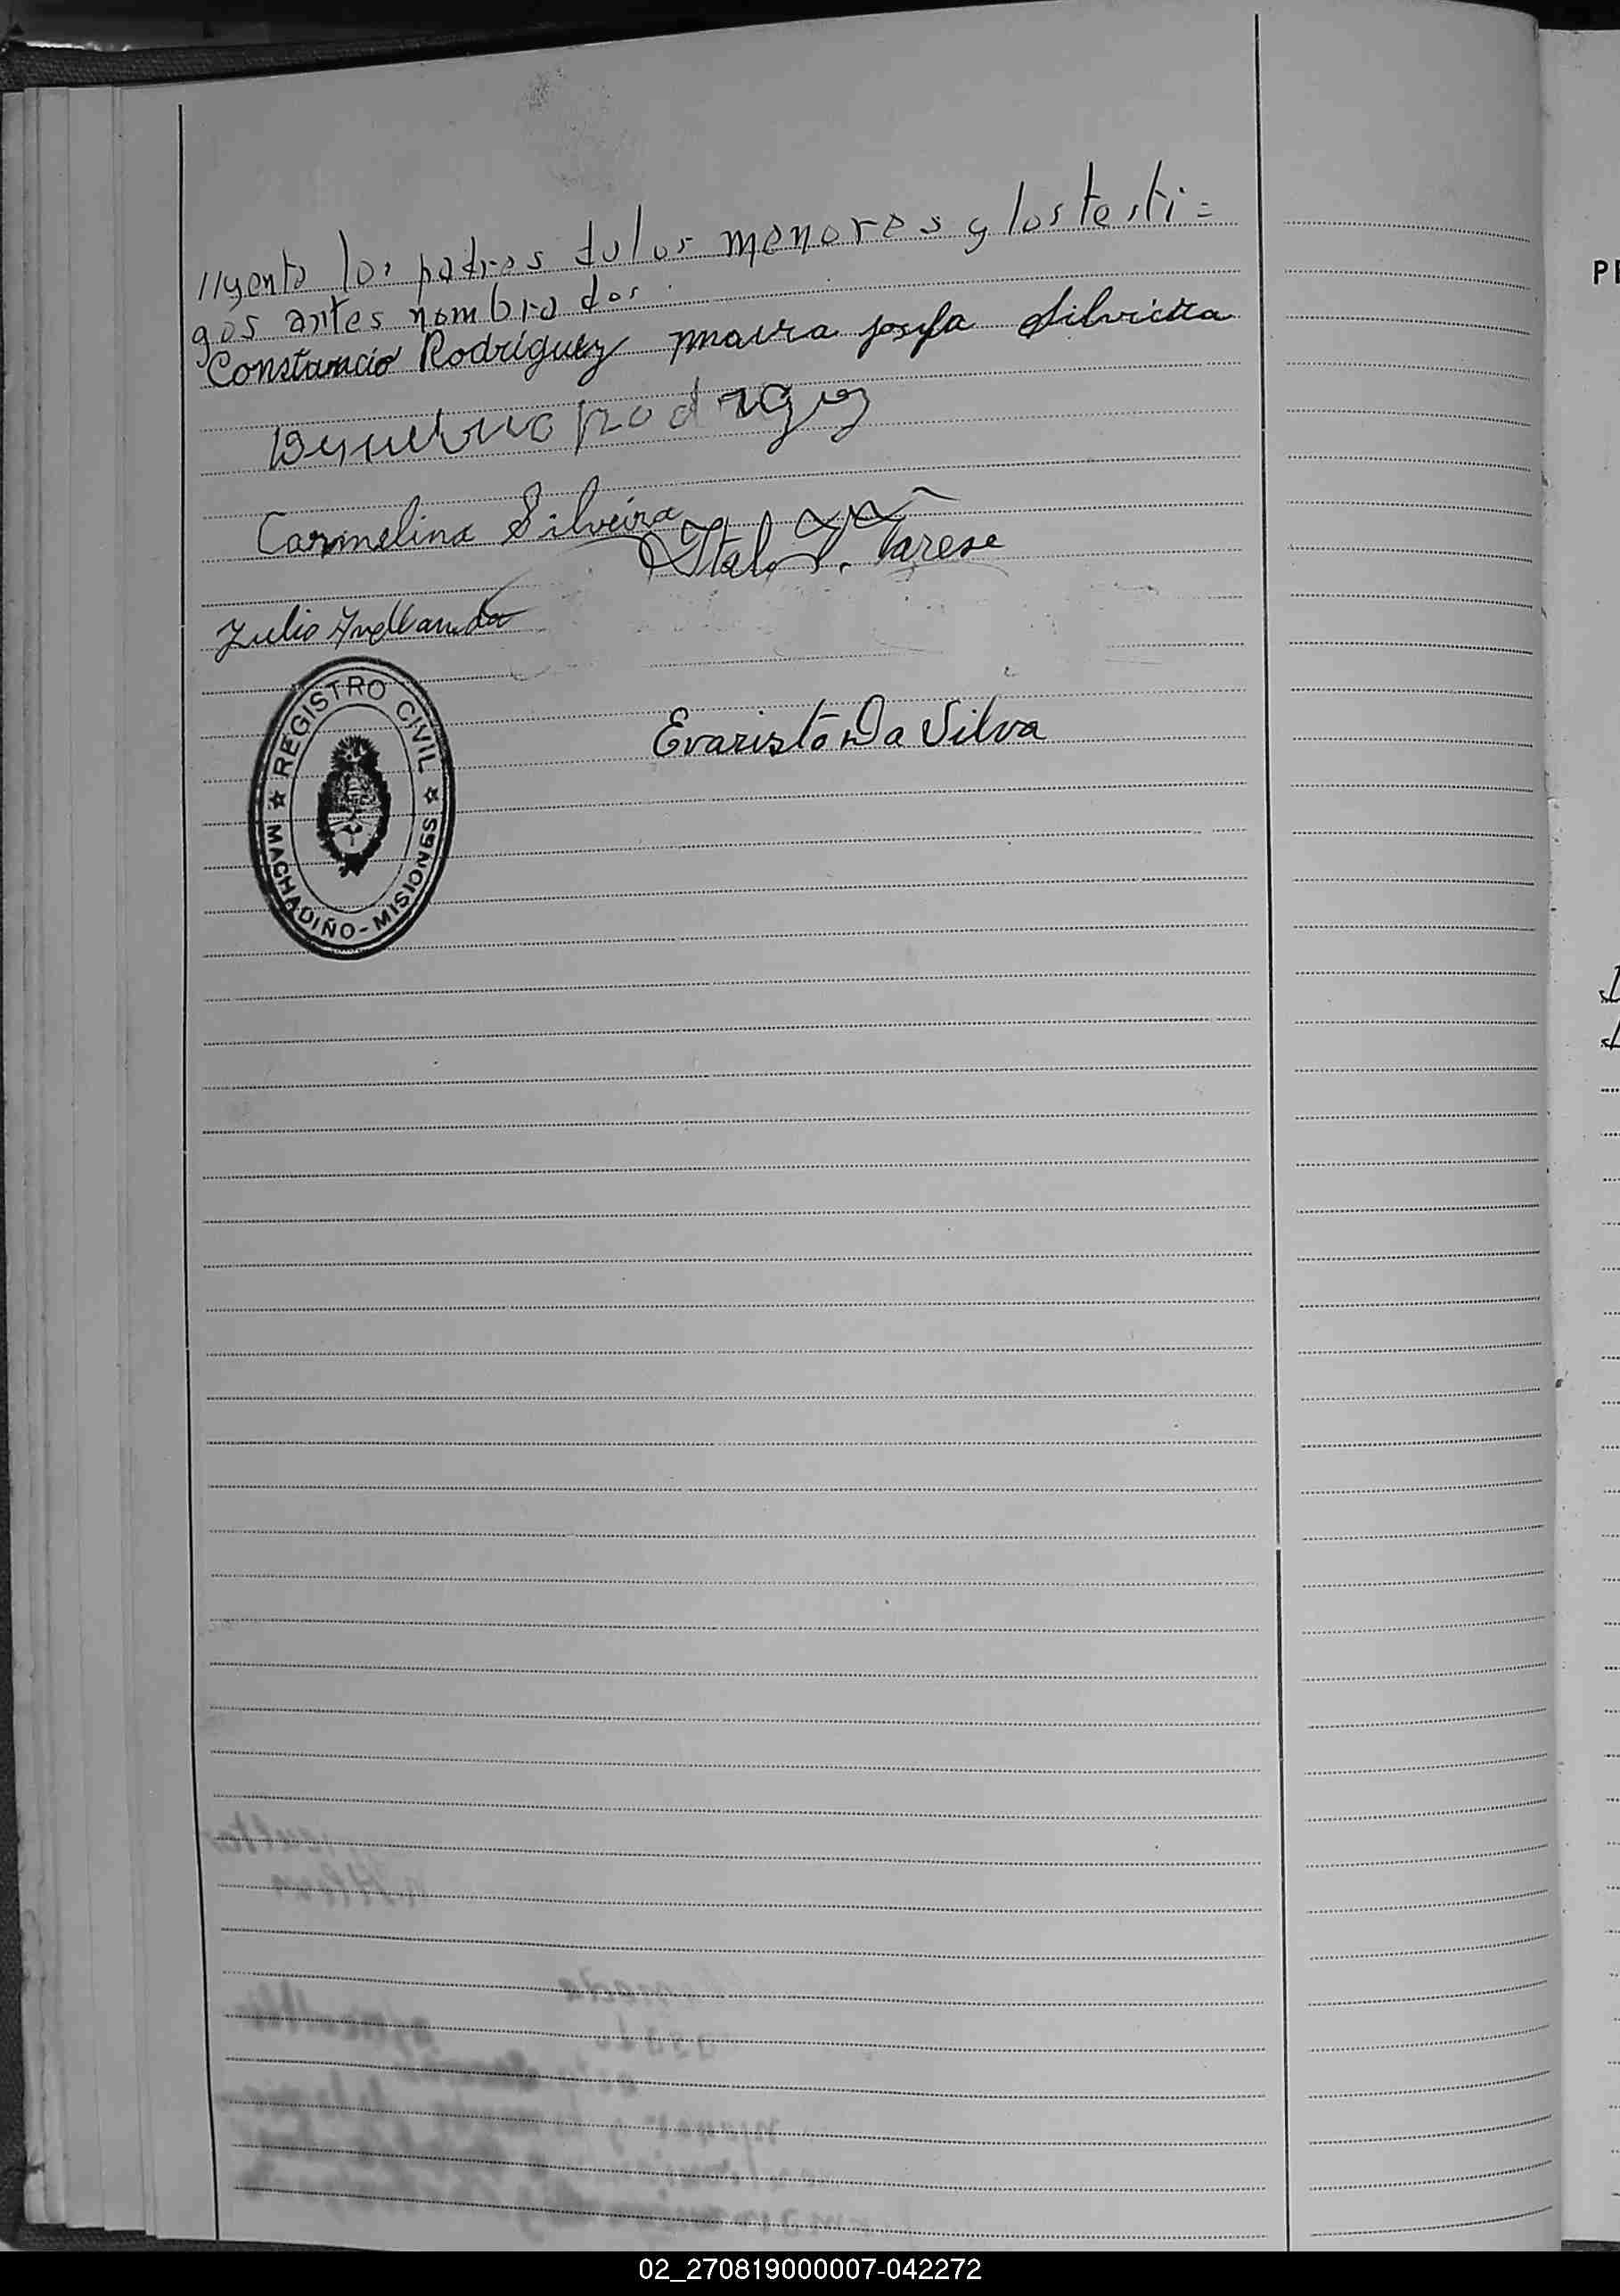 //yente los padres de los menores y los testi=
gos antes nombrados.
Constancio Rodríguez maura josefa Silveira
Demetrio rodrigez
Carmelina Silveira
Italo T. Varese
Julio Avellaneda
REGISTRO CIVIL
MACHADIÑO - MISIONES
Evaristo Da Silva
02_270819000007-042272